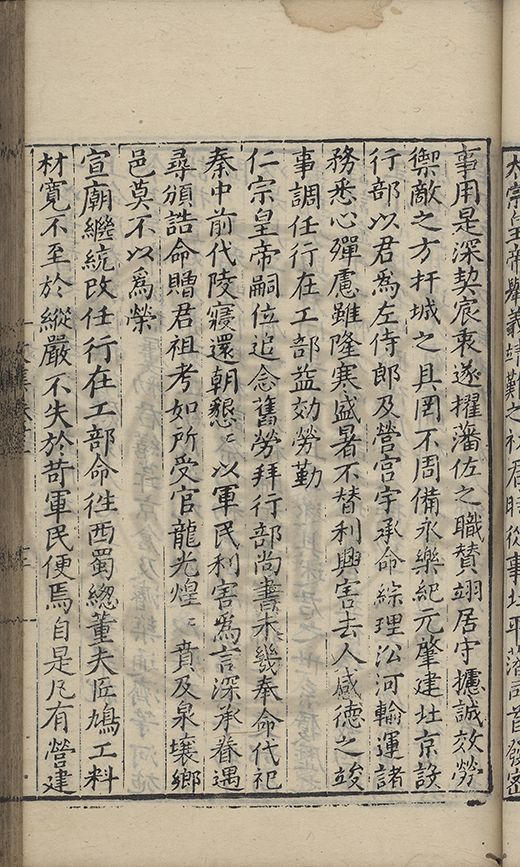 太宗皇帝舉義靖難之初君時從事北平藩
事用是深契宸衷遂擢藩佐之職贊翊居守攄誠效勞
禦敵之方扞城之具罔不周備永樂紀元肇建北京設
行部以君爲左侍郎及營宫宇承命綜理㳂河輸運諸
務悉心殫慮雖隆寒盛暑不替利興害去人感德之竣
事調任行在工部益効勞勤
仁宗皇帝嗣位追念舊勞拜行部尚書未幾奉命代祀
秦中前代陵寢還朝懇〻以軍民利害爲言深承眷遇
尋頒誥命贈君祖考如所受官龍光煌〻賁及泉壤鄉
邑莫不以爲榮
宣廟繼統改任行在工部命徃西蜀緫董夫匠鳩工料
材寛不至於縱嚴不失於苛軍民便焉自是凢有營建